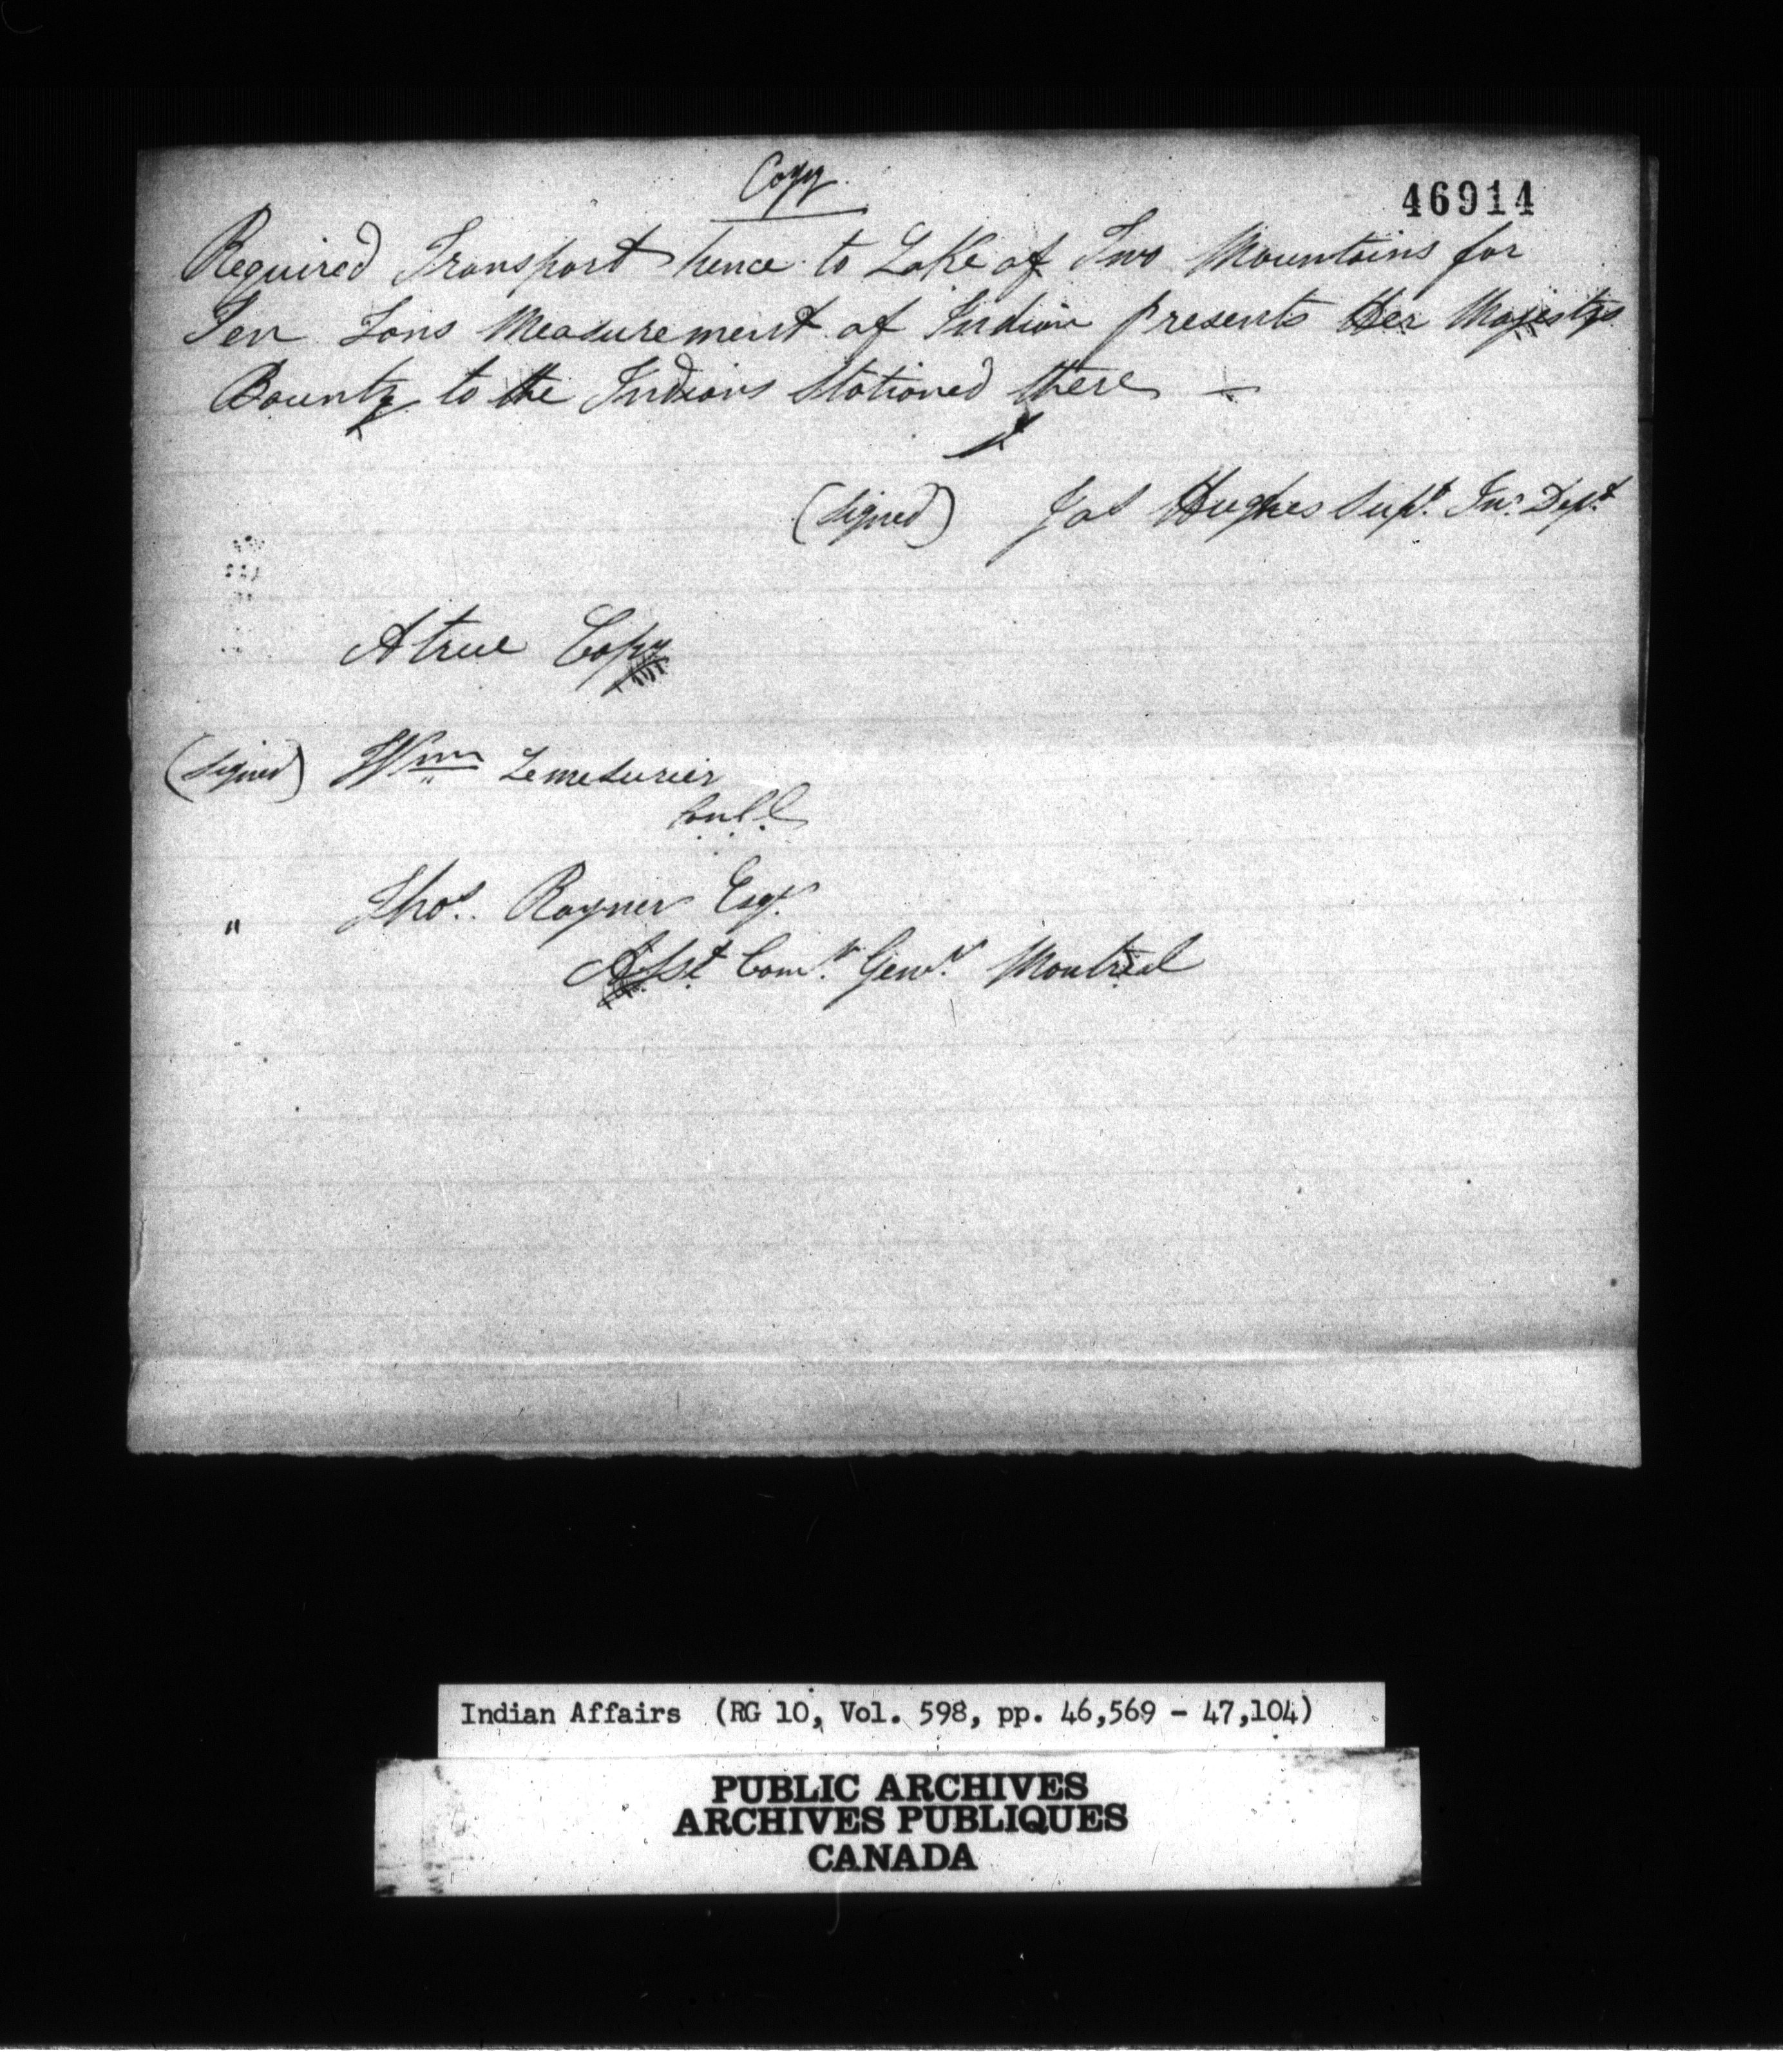 Copy
46914
Required Transport hence to Lake of Two Mountains for
Ten Tons Measurement of Indian Presents Her Majestys
Bounty to the Indians Stationed there —
(Signed) Jas Hughes Supt. In: Dept
A true Copy
(Signed) Wm Lemesurier
" Thos. Rayner Esqr.
Asst Comr. Genl. Montreal
Indian Affairs (RG 10, Vol. 598, pp. 46,569 - 47,104)
PUBLIC ARCHIVES
ARCHIVES PUBLIQUES
CANADA